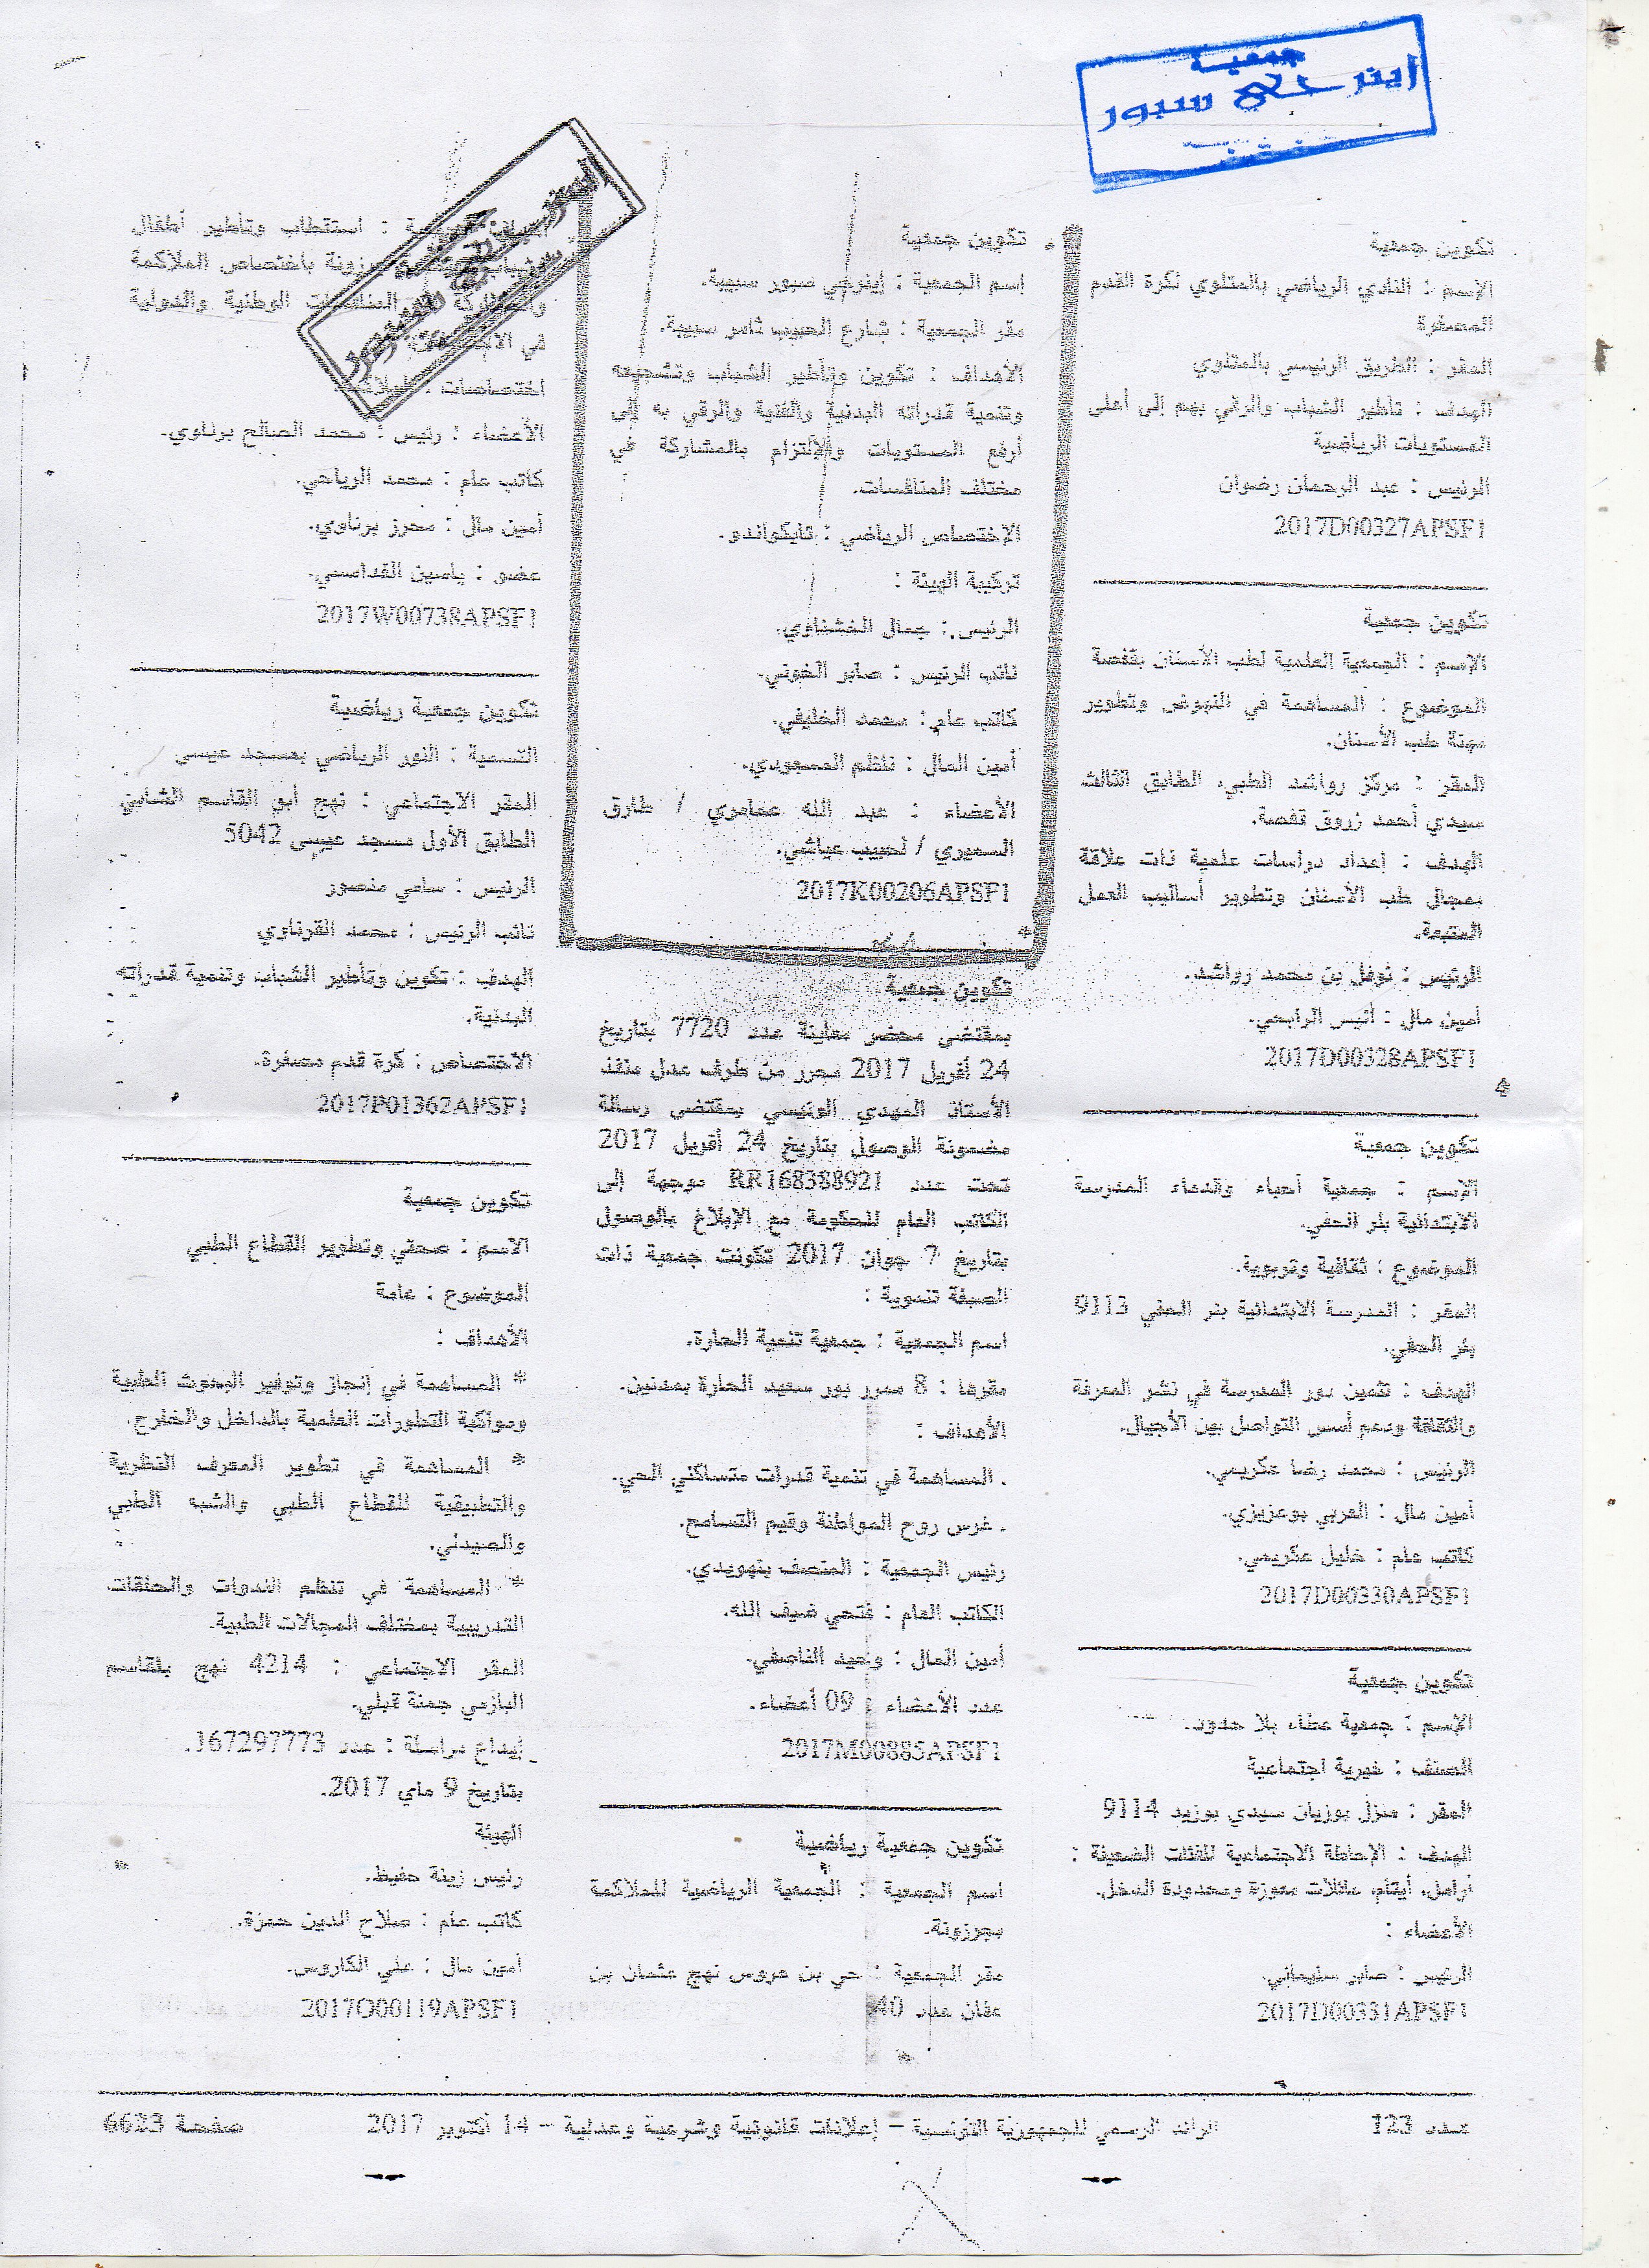 جمعية
تكوين جمعية
الإسم : النادي الرياضي بالمتلوي لكرة القدم
المصغرة
المقر : الطريق الرئيسي بالمتلوي
الهدف : تأطير الشباب والرقي بهم إلى أعلى
المستويات الرياضية
الرئيس : عبد الرحمان رضوان
2017D00327APSF1
تكوين جمعية
الإسم : الجمعية العلمية لطب الأسنان بقفصة
الموضوع : المساهمة في النهوض وتطوير
مهنة طب الأسنان.
المقر : مركز رواشد الطبي، الطابق الثالث
سيدي أحمد زروق قفصة.
الهدف : إعداد دراسات علمية ذات علاقة
بمجال طب الأسنان وتطوير أساليب العمل
المتبعة.
الرئيس : نوفل بن محمد رواشد.
أمين مال : أنيس الرابحي.
2017D00328APSF1
تكوين جمعية
الإسم : جمعية أحباء وقدماء المدرسة
الابتدائية بئر الحفي.
الموضوع : ثقافية وتربوية.
المقر : المدرسة الابتدائية بئر الحفي 9113
بئر الحفي.
الهدف : تثمين دور المدرسة في نشر المعرفة
والثقافة ودعم أسس التواصل بين الأجيال.
الرئيس : محمد رضا عكريمي.
أمين مال : العربي بوعزيزي.
كاتب عام : خليل عكريمي.
2017D00330APSF1
تكوين جمعية
الإسم : جمعية عطاء بلا حدود.
الصنف : خيرية اجتماعية
المقر : منزل بوزيان سيدي بوزيد 9114
الهدف : الإحاطة الاجتماعية للفئات الضعيفة :
أرامل، أيتام، عائلات معوزة ومحدودة الدخل.
الأعضاء :
الرئيس : صابر سليماني.
2017D00331APSF1
تكوين جمعية
اسم الجمعية : إينرجي سبور سبيبة.
مقر الجمعية : شارع الحبيب ثامر سبيبة.
الأهداف : تكوين وتأطير الشباب وتشجيعه
وتنمية قدراته البدنية والفنية والرقي به إلى
أرفع المستويات والإلتزام بالمشاركة في
مختلف المنافسات.
الإختصاص الرياضي : تايكواندو.
تركيبة الهيئة :
الرئيس : جمال الخشناوي.
نائب الرئيس : صابر الخوني.
كاتب عام : محمد الخليفي.
أمين المال : ناظم المسعودي.
الأعضاء : عبد الله عمامري / طارق
السميري / لحبيب عياشي.
2017K00206APSF1
تكوين جمعية
بمقتضى محضر معاينة عدد 7720 بتاريخ
24 أفريل 2017 محرر من طرف عدل منفذ
الأستاذ المهدي الونيسي بمقتضى رسالة
مضمونة الوصول بتاريخ 24 أفريل 2017
تحت عدد RR168388921 موجهة إلى
الكاتب العام للحكومة مع الإبلاغ بالوصول
بتاريخ 7 جوان 2017 تكونت جمعية ذات
الصبغة تنموية :
اسم الجمعية : جمعية تنمية الحارة.
مقرها : 8 ممرر بور سعيد الحارة بمدنين.
الأهداف :
. المساهمة في تنمية قدرات متساكني الحي.
. غرس روح المواطنة وقيم التسامح.
رئيس الجمعية : المنصف بنهويدي.
الكاتب العام : فتحي ضيف الله.
أمين المال : وحيد الناصفي.
عدد الأعضاء : 09 أعضاء.
2017M00885APSF1
تكوين جمعية رياضية
اسم الجمعية : الجمعية الرياضية للملاكمة
بجرزونة.
مقر الجمعية : حي بن عروس نهج عثمان بن
عفان عدد 40
: استقطاب وتأطير أطفال
جرزونة باختصاص الملاكمة
المنافسات الوطنية والدولية
في
اختصاصات :
الأعضاء : رئيس : محمد الصالح برناوي.
كاتب عام : محمد الرياحي.
أمين مال : محرز برناوي.
عضو : ياسين القداسمي.
2017W00738APSF1
تكوين جمعية رياضية
التسمية : النور الرياضي بمسجد عيسى
المقر الاجتماعي : نهج أبو القاسم الشابي
الطابق الأول مسجد عيسى 5042
الرئيس : سامي منصور
نائب الرئيس : محمد القرناوي
الهدف : تكوين وتأطير الشباب وتنمية قدراته
البدنية.
الاختصاص : كرة قدم مصغرة.
2017P01362APSF1
تكوين جمعية
الاسم : صحتي وتطوير القطاع الطبي
الموضوع : عامة
الأهداف :
* المساهمة في إنجاز وتوفير البحوث الطبية
ومواكبة التطورات العلمية بالداخل والخارج.
* المساهمة في تطوير المعرف النظرية
والتطبيقية للقطاع الطبي والشبه الطبي
والصيدلي.
* المساهمة في تنظم الندوات والحلقات
التدريبية بمختلف المجالات الطبية.
المقر الاجتماعي : 4214 نهج بلقاسم
البازمي جمنة قبلي.
إيداع مراسلة : عدد 167297773.
بتاريخ 9 ماي 2017.
الهيئة
رئيس زينة حفيظ.
كاتب عام : صلاح الدين حمزة.
أمين مال : علي الكاروس.
2017O00119APSF1
عدد 123
الرائد الرسمي للجمهورية التونسية – إعلانات قانونية وشرعية وعدلية – 14 أكتوبر 2017
صفحة 6623